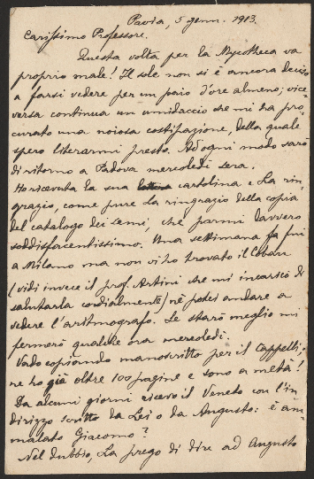 Pavia, 5 genn. 1913.
Carissimo Professore.
Questa volta per la Mycotheca va
proprio male! Il sole non si è ancora deciso
a farsi vedere per un paio d'ore almeno; vice-
versa continua un umidaccio che mi ha pro-
curato una noiosa costipazione, della quale
spero liberarmi presto. Ad ogni modo sarò
di ritorno a Padova mercoledì sera.
Ho ricevuta la sua cartolina e La rin-
grazio, come pure La ringrazio della copia
del catalogo dei semi, che parmi davvero
soddisfacentissimo. Una settimana fa fui
a Milano ma non vi ho trovato il
(vidi invece il prof. Artini che mi incaricò di
salutarla cordialmente) nè potei andare a
vedere l'aritmografo. Se starò meglio mi
fermerò qualche ora mercoledì.
Vado copiando manoscritto per il Cappelli;
ne ho già oltre 100 pagine e sono a metà!
Da alcuni giorni ricevo il Veneto con l'in-
dirizzo scritto da Lei o da Augusto: è am-
malato Giacomo?
Nel dubbio, La prego di dire ad Augusto